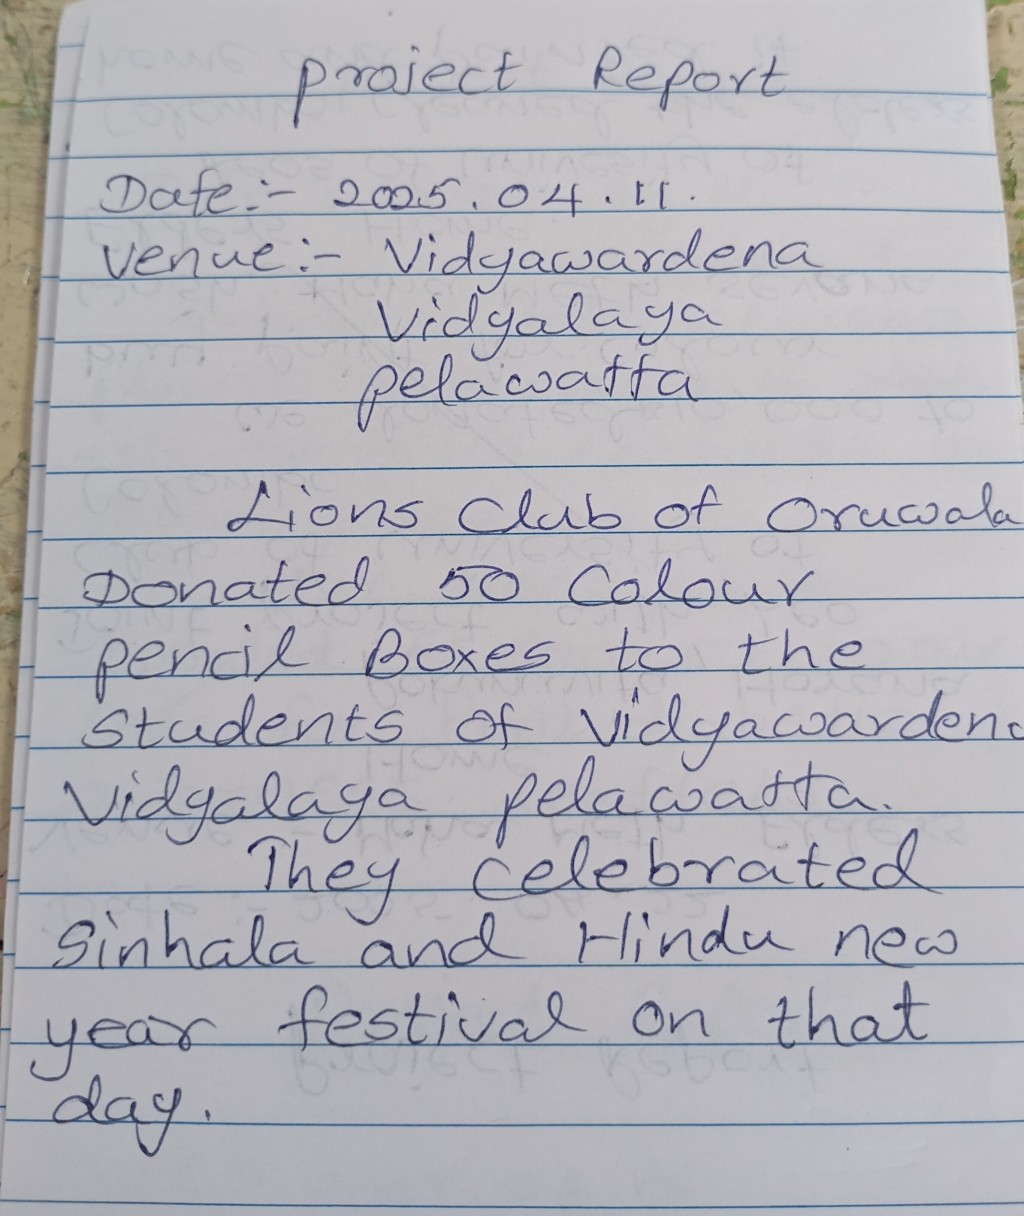 project Report
Date:- 2025.04.11.
venue:- Vidyawardena
Vidyalaya
pelawatta
Lions Club of Oruwala
Donated 50 Colour
pencil Boxes to the
Students of Vidyawardena
Vidyalaya pelawatta.
They celebrated
Sinhala and Hindu new
year festival on that
day.